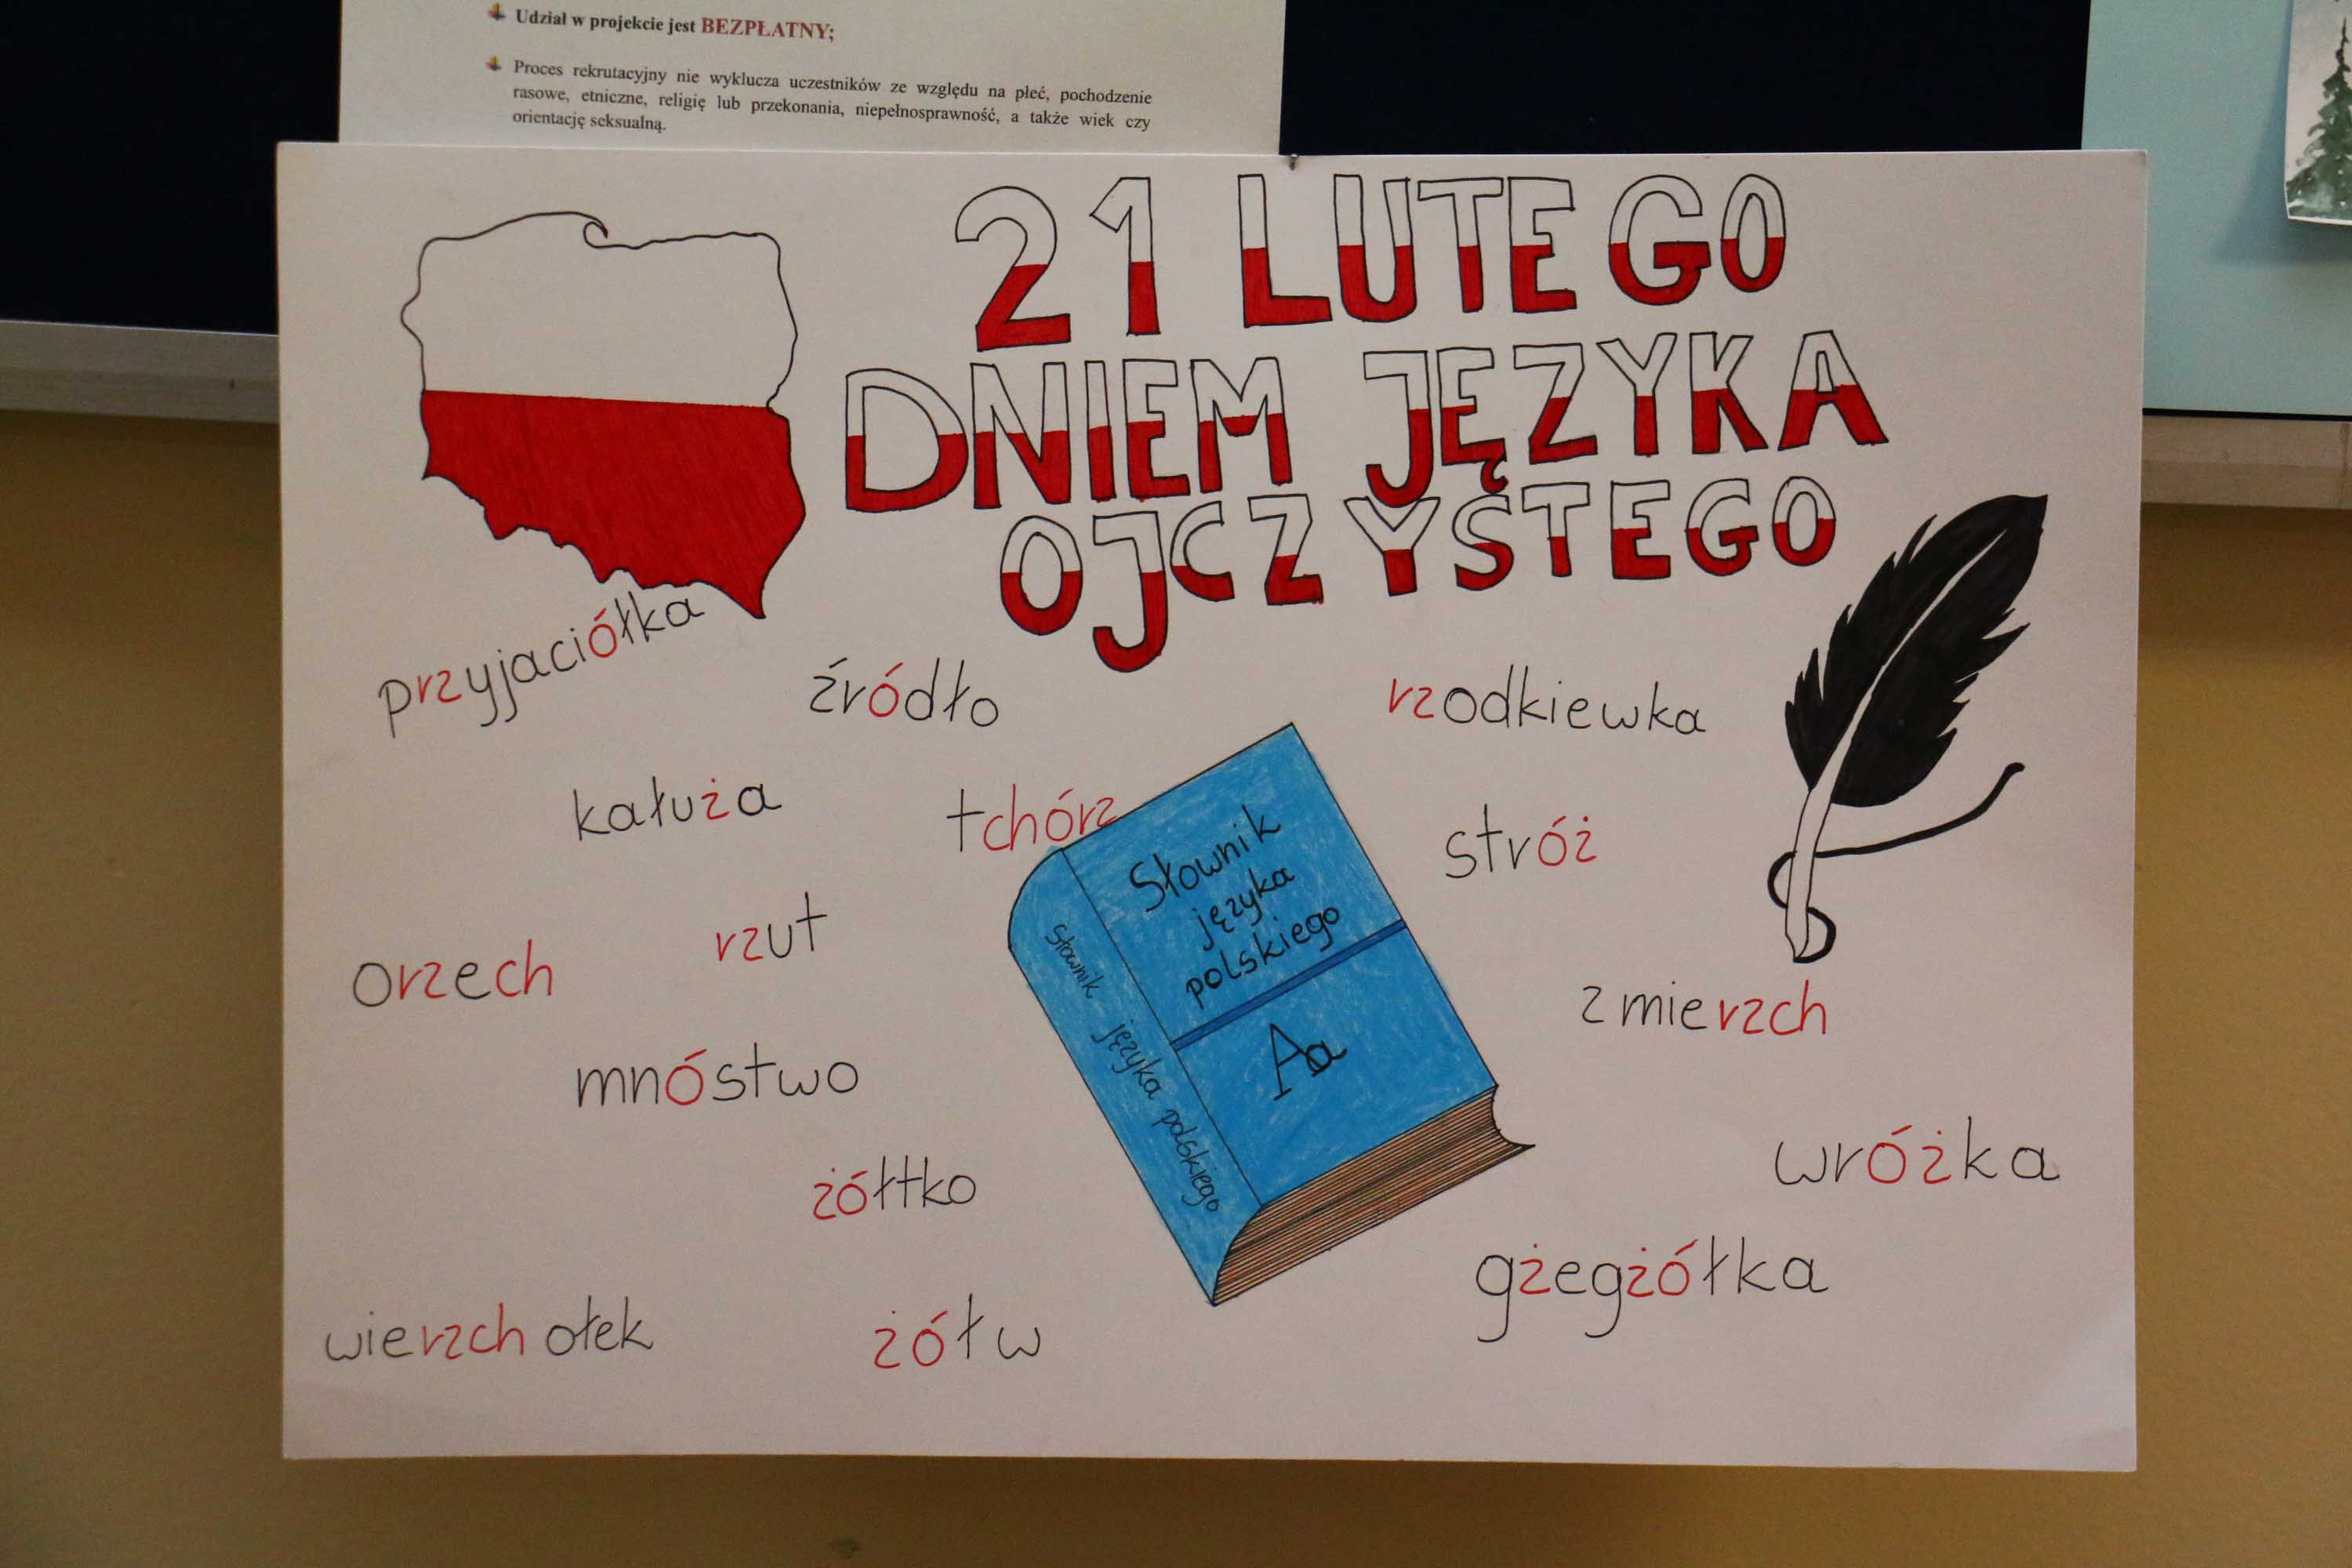 Udział w projekcie jest BEZPŁATNY;
Proces rekrutacyjny nie wyklucza uczestników ze względu na płeć, pochodzenie
rasowe, etniczne, religię lub przekonania, niepełnosprawność, a także wiek czy
orientację seksualną.
21 LUTEGO
DNIEM JĘZYKA
OJCZYSTEGO
przyjaciółka
źródło
rzodkiewka
kałuża
tchórz
stróż
Słownik
języka
polskiego
Aa
Słownik języka polskiego
rzut
orzech
zmierzch
mnóstwo
wróżka
żółtko
gżegżółka
wierzchołek
żółw